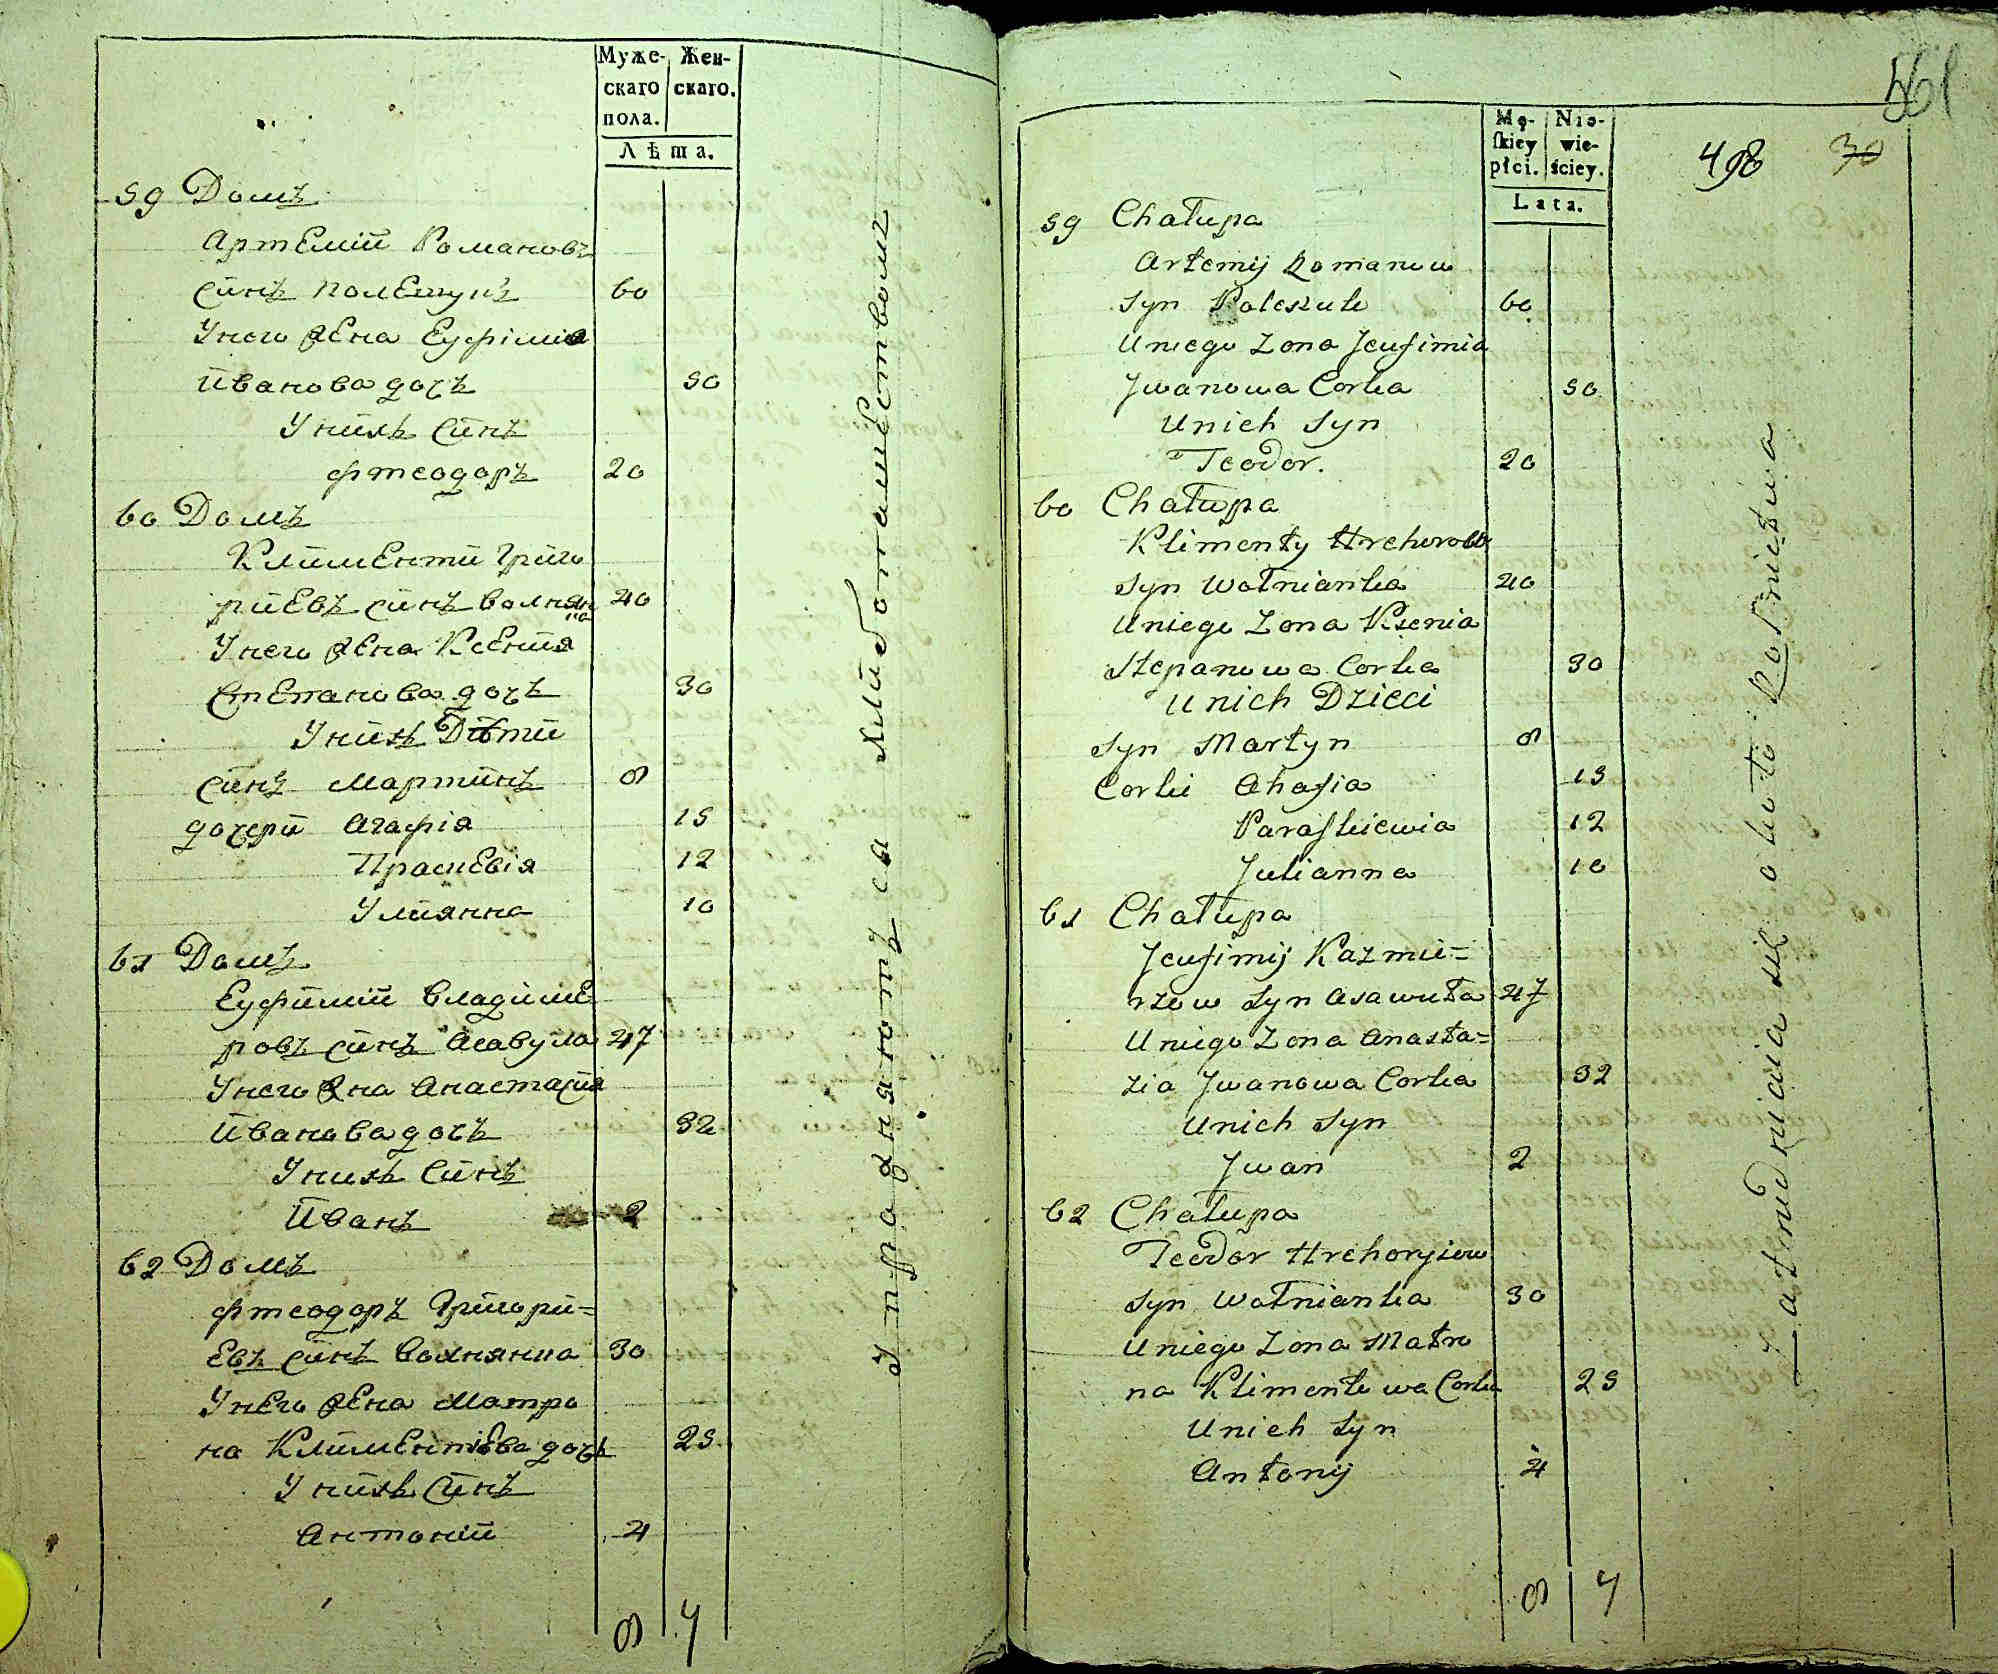 Муже-
скаго
пола.
Жен-
скаго.
Лѣта.
59 Домъ
Артемій Романовъ
синъ Полешукъ 60
Унего жена Еуфіміа
Иванова дочъ 50
Унихъ Синъ
Фтеодоръ 20
60 Домъ
Климентий Григо
риевъ синъ Волнянка 40
Унего жена Ксения
Степанова дочъ 30
Унихъ Дѣтии
Синъ Мартинъ 8
дочери Агафія 15
Праскевія 12
Улиянна 10
61 Домъ
Еуфимии Владиме
ровъ синъ Асавула 47
Унего жна Анастасия
Иванова дочъ 32
Унихъ Синъ
Иванъ 2
62 Домъ
Фтеодоръ Григори=
евъ синъ Волнянка 30
Унего жена Матро
на Климентіева дочъ 25
Унихъ Синъ
Антоний 4
8 7
Упражняютъся хлиботашеством
561
Mę-
ſkiey
płci.
Nie-
wie-
ściey.
Lata.
498 30
59 Chałupa
Artemij Romanow
Syn Poleszuk 60
Uniego Zona Jeufimia
Jwanowa Corka 50
Unich Syn
Teodor. 20
60 Chałupa
Klimenty Hrehorow
Syn Wołnianka 40
Uniego Zona Ksenia
Stepanowa Corka 30
Unich Dzieci
Syn Martyn 8
Corki Ahafia 15
Paraſkiewia 12
Julianna 10
61 Chałupa
Jeufimij Kazmie=
rzow Syn Asawuła 47
Uniego Zona Anasta=
zia Jwanowa Corka 32
Unich Syn
Jwan 2
62 Chałupa
Teodor Hrehoryiew
Syn Wołnianka 30
Uniego Zona Matro
na Klimentowa Corka 25
Unich Syn
Antonij 4
8 7
Zatrudniaia się około Rolnictwa